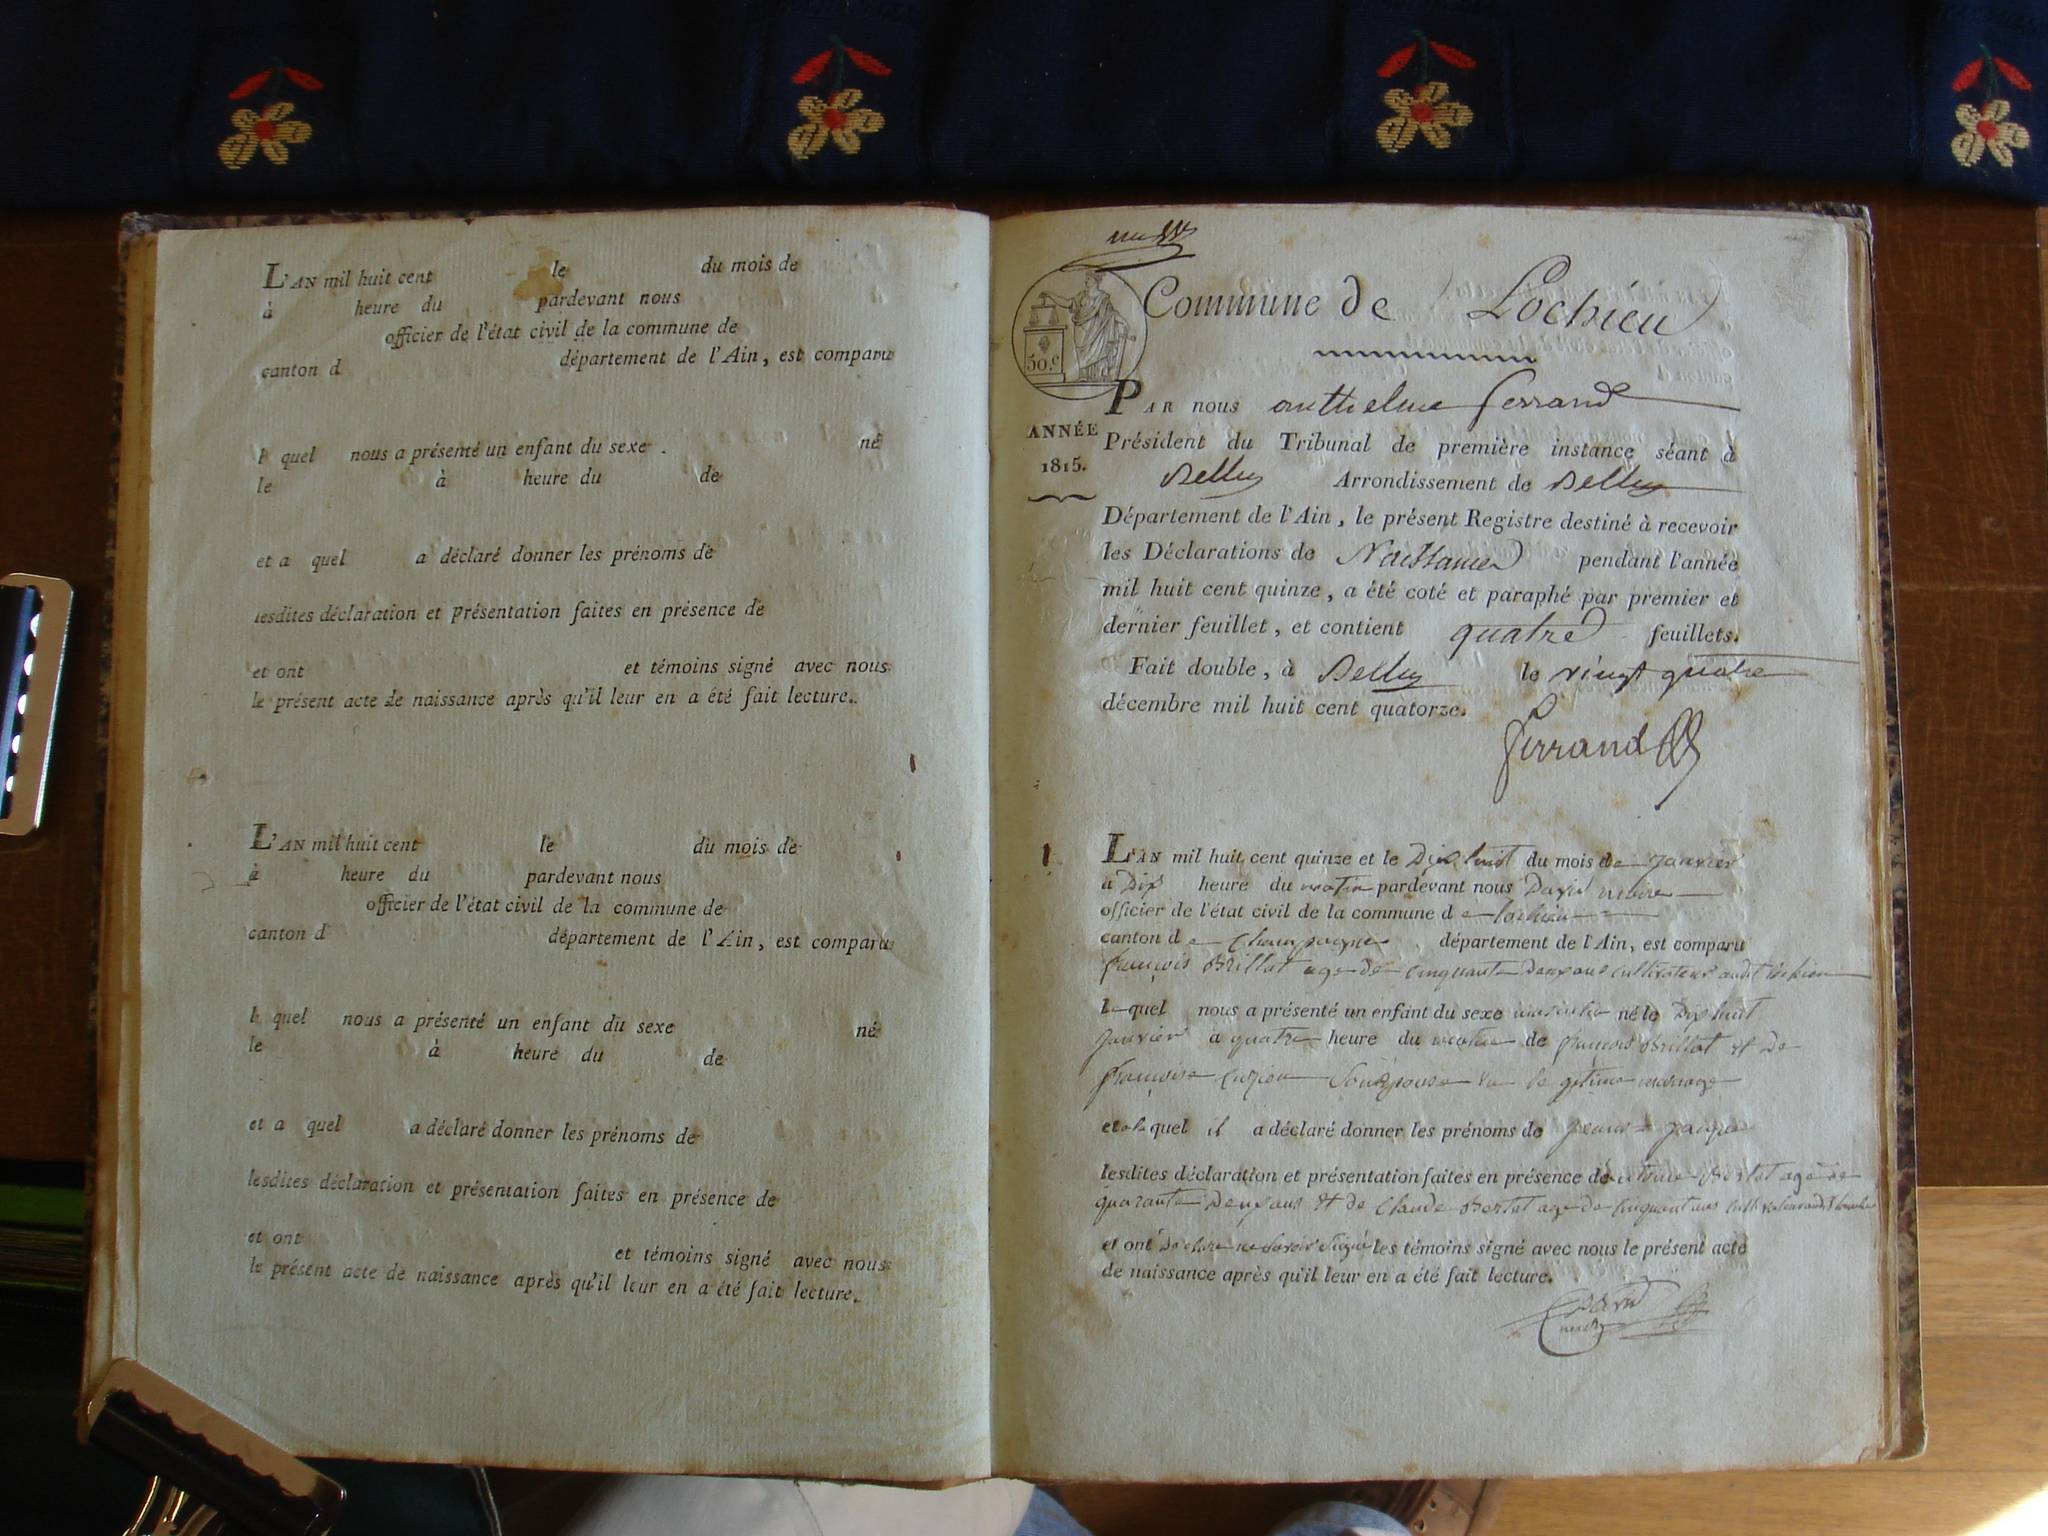 L'AN mil huit cent le du mois de
à heure du pardevant nous
officier de l'état civil de la commune de
canton d département de l'Ain, est comparu
l quel nous a présenté un enfant du sexe né
le à heure du de
et a quel a déclaré donner les prénoms de
lesdites déclaration et présentation faites en présence de
et ont et témoins signé avec nous
le présent acte de naissance après qu'il leur en a été fait lecture.
L'AN mil huit cent le du mois de
à heure du pardevant nous
officier de l'état civil de la commune de
canton d département de l'Ain, est comparu
l quel nous a présenté un enfant du sexe né
le à heure du de
et a quel a déclaré donner les prénoms de
lesdites déclaration et présentation faites en présence de
et ont et témoins signé avec nous
le présent acte de naissance après qu'il leur en a été fait lecture.
Commune de Lochieu
50.c
PAR nous anthelme ferrand
ANNÉE
1815.
Président du Tribunal de première instance séant à
Belley Arrondissement de Belley
Département de l'Ain, le présent Registre destiné à recevoir
les Déclarations de Naissances pendant l'année
mil huit cent quinze, a été coté et paraphé par premier et
dernier feuillet, et contient quatre feuillets.
Fait double, à Belley le vingt quatre
décembre mil huit cent quatorze.
Ferrand
L'AN mil huit cent quinze et le Dix huit du mois de janvier
à Dix heure du matin pardevant nous David maire
officier de l'état civil de la commune de lochieu
canton de Champagne, département de l'Ain, est comparu
françois Brillat age de cinquante Deux ans cultivateur audit lochieu
le quel nous a présenté un enfant du sexe masculin né le Dix huit
janvier à quatre heure du matin de françois Brillat et De
françoise Son épouse légitime mariage
et a quel il a déclaré donner les prénoms de
lesdites déclaration et présentation faites en présence de antoine Bertet age de
quarante Deux ans et de Claude Bertet age de cinquant ans
et ont Declare ne Savoir Signé les témoins signé avec nous le présent acte
de naissance après qu'il leur en a été fait lecture.
David